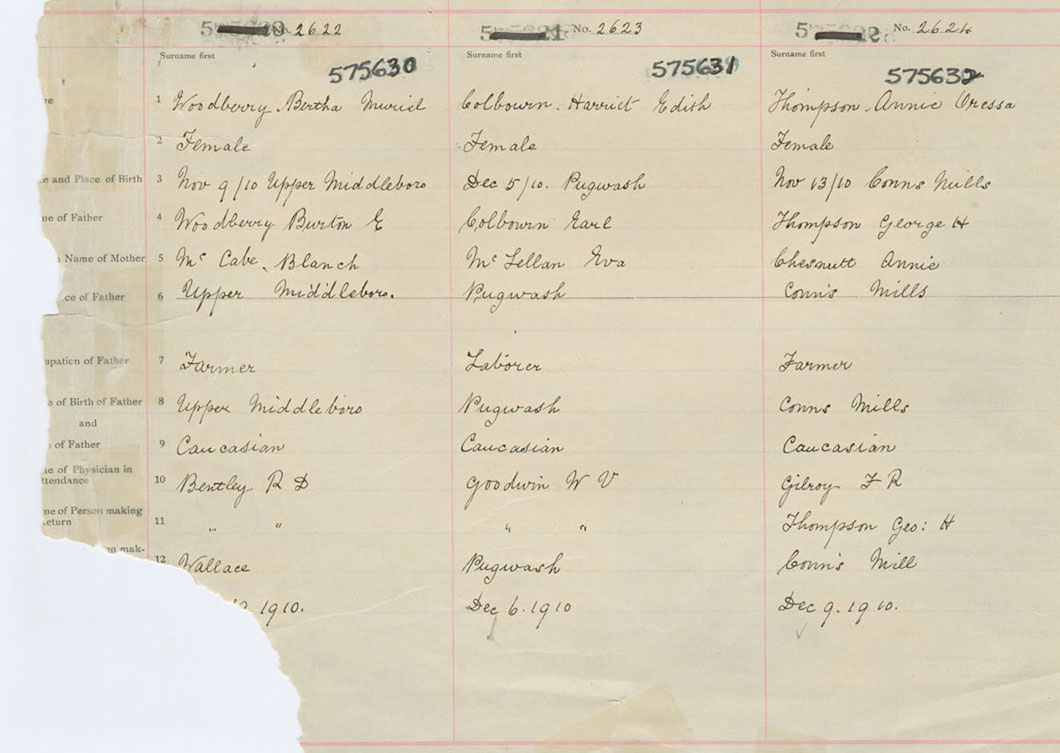 No. 2622 No. 2623 No. 2624
Surname first Surname first Surname first
575630 575631 575632
1 Woodberry Bertha Muriel Colbourn. Harriet Edith Thompson Annie Oressa
2 Female Female Female
e and Place of Birth 3 Nov 9/10 Upper Middleboro Dec 5/10. Pugwash Nov 13/10 Conns Mills
ne of Father 4 Woodberry Burton E Colbourn Earl Thompson George H
Name of Mother 5 Mc Cabe, Blanch Mc Lellan Eva Chesnutt Annie
ce of Father 6 Upper Middleboro. Pugwash Conn's Mills
upation of Father 7 Farmer Laborer Farmer
e of Birth of Father 8 Upper Middleboro Pugwash Conns Mills
and
of Father 9 Caucasian Caucasian Caucasian
ne of Physician in
ttendance 10 Bentley R D Goodwin W V Gilroy F R
me of Person making
eturn 11 " " " " Thompson Geo: H
on mak-
12 Wallace Pugwash Conn's Mill
1910. Dec 6. 1910 Dec 9. 1910.